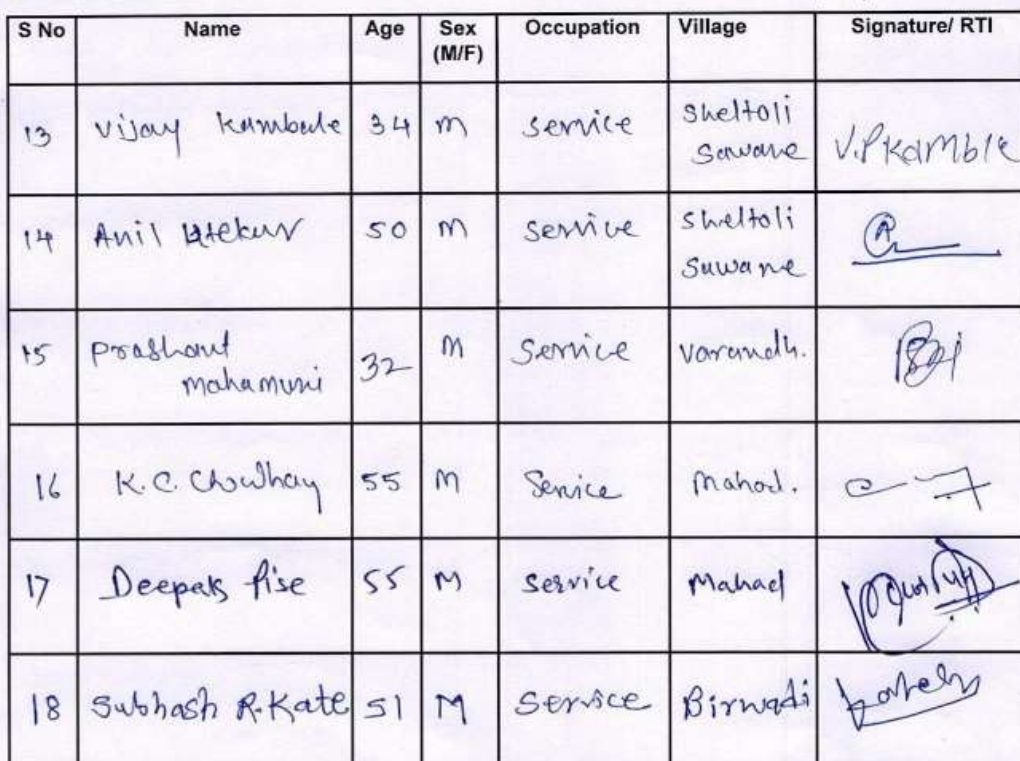 S No Name Age Sex (M/F) Occupation Village Signature/ RTI
13 Vijay Kambale 34 M Service Sheltoli Sawane V.P Kamble
14 Anil 50 M Service Sheltoli Sawane
15 Prashant Mahamuni 32 M Service Varandh.
16 K. C. 55 M Service Mahad.
17 Deepak Pise 55 M Service Mahad
18 Subhash R. Kate 51 M Service Birwadi